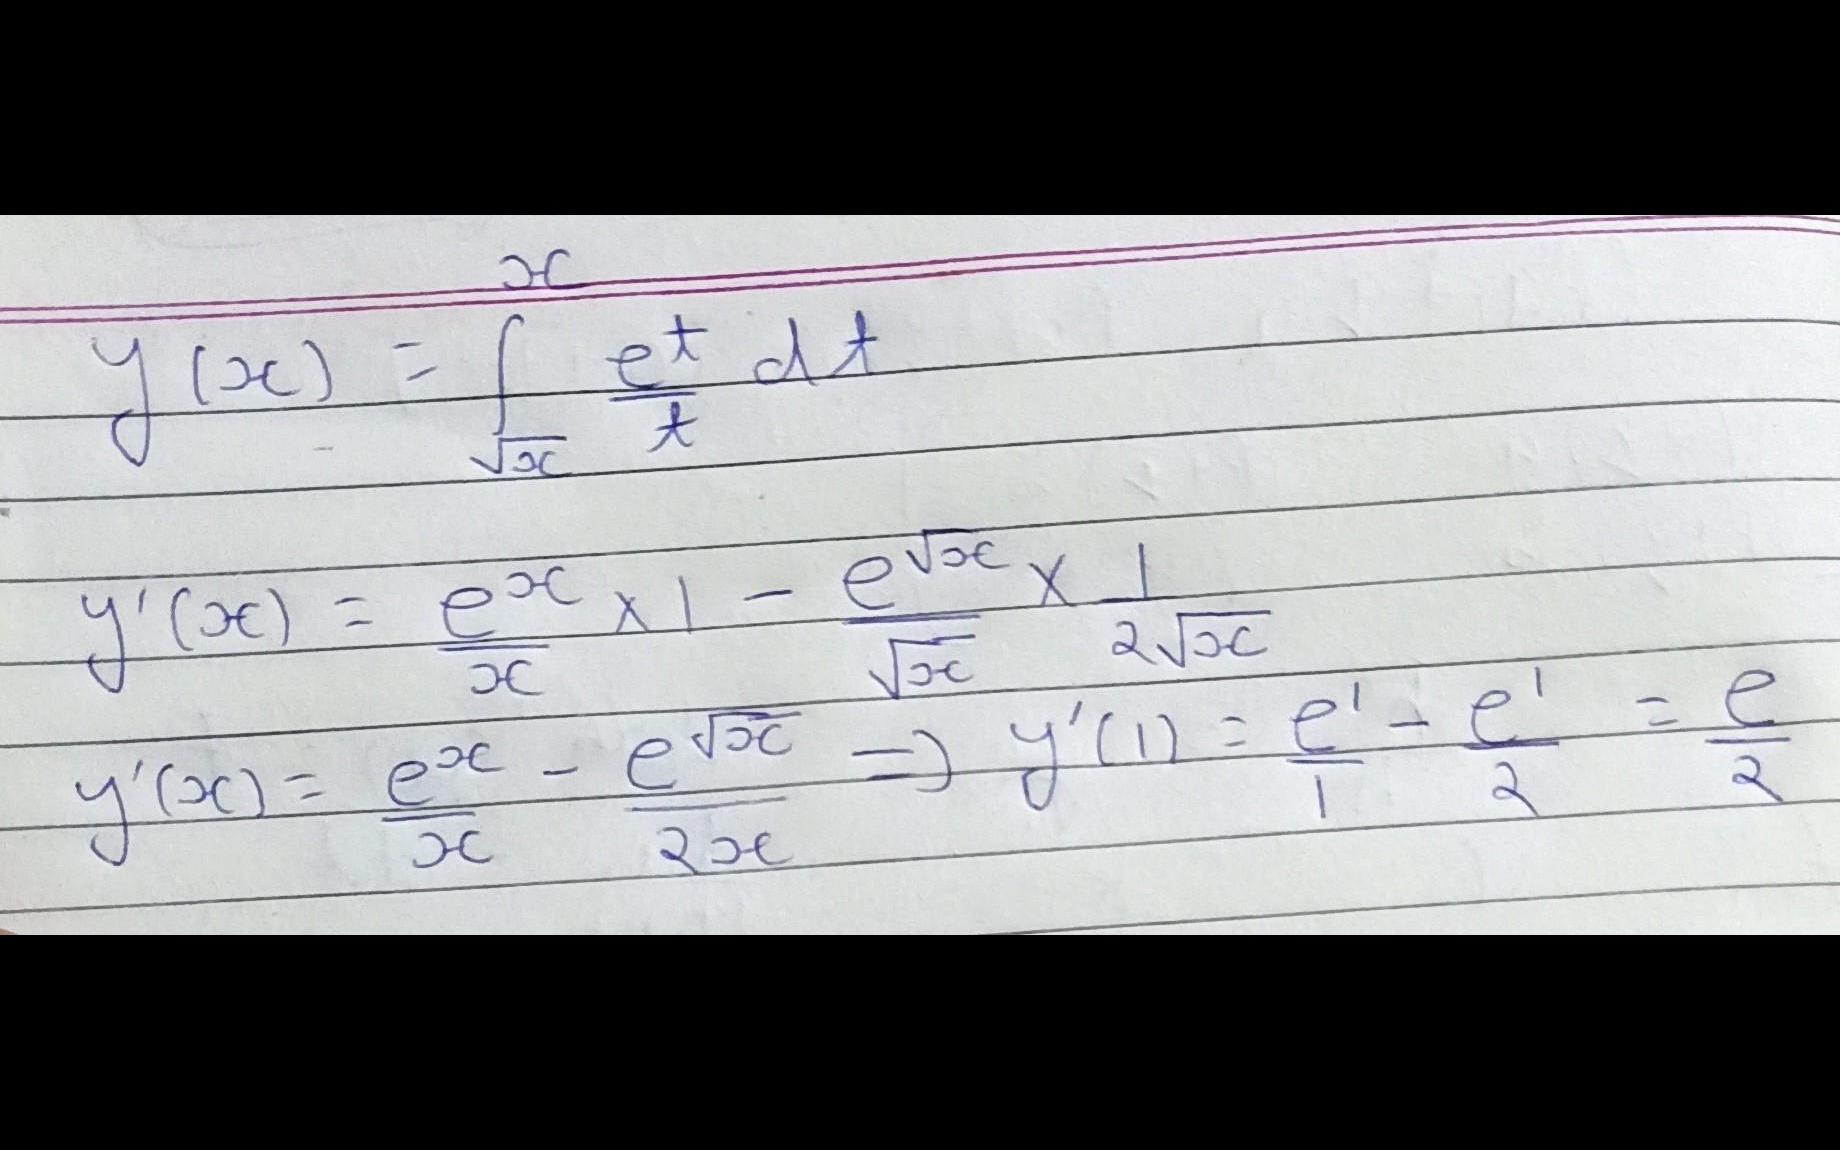 y(x) = ∫_{√x}^{x} e^t/t dt
y'(x) = e^x/x × 1 - e^{√x}/√x × 1/(2√x)
y'(x) = e^x/x - e^{√x}/(2x) ⇒ y'(1) = e^1/1 - e^1/2 = e/2